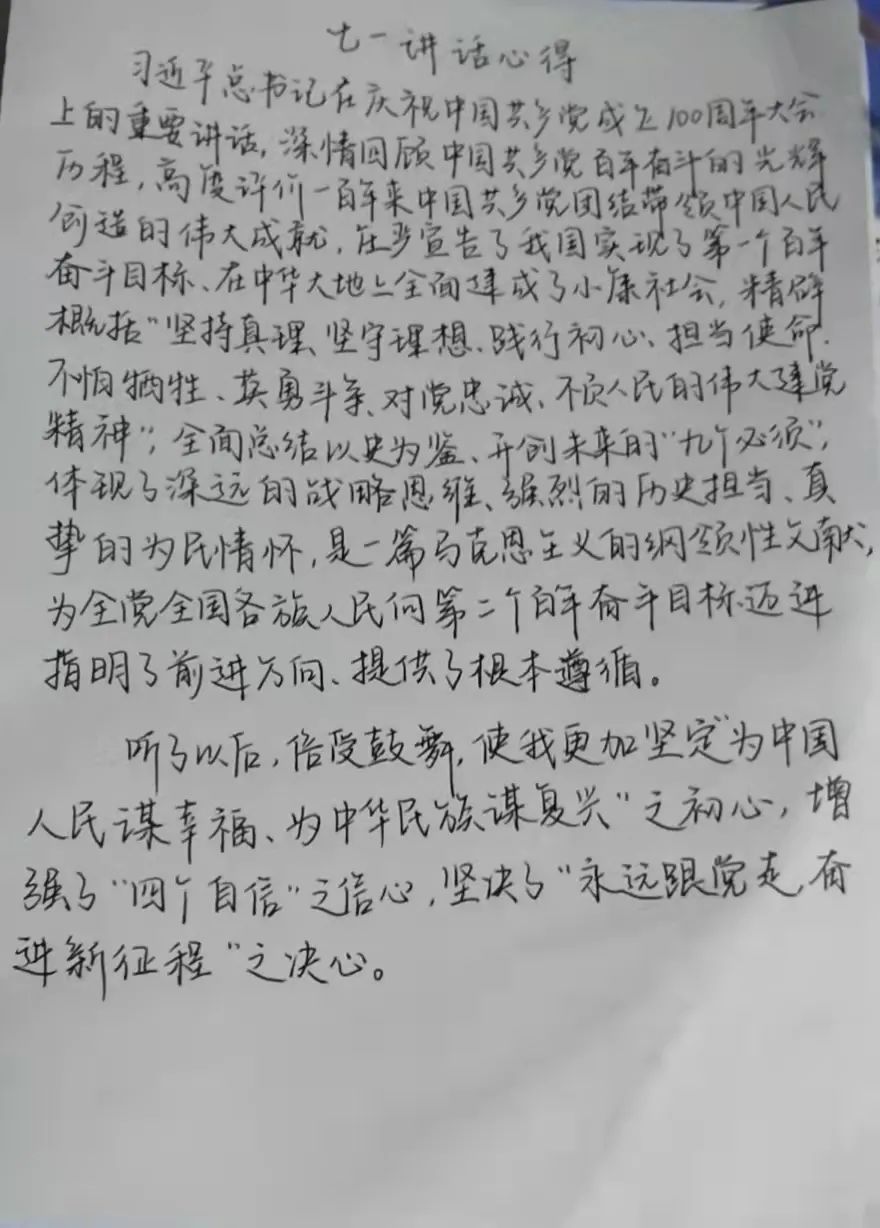 七一讲话心得
习近平总书记在庆祝中国共产党成立100周年大会
上的重要讲话,深情回顾中国共产党百年奋斗的光辉
历程,高度评价一百年来中国共产党团结带领中国人民
创造的伟大成就,庄严宣告了我国实现了第一个百年
奋斗目标、在中华大地上全面建成了小康社会,精辟
概括"坚持真理、坚守理想、践行初心、担当使命、
不怕牺牲、英勇斗争、对党忠诚、不负人民的伟大建党
精神";全面总结以史为鉴、开创未来的"九个必须",
体现了深远的战略思维、强烈的历史担当、真
挚的为民情怀,是一篇马克思主义的纲领性文献,
为全党全国各族人民向第二个百年奋斗目标迈进
指明了前进方向、提供了根本遵循。
听了以后,倍受鼓舞,使我更加坚定"为中国
人民谋幸福、为中华民族谋复兴"之初心,增
强了"四个自信"之信心,坚决了"永远跟党走,奋
进新征程"之决心。